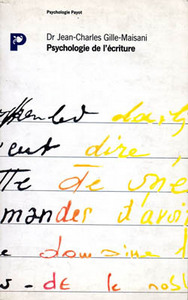 Psychologie Payot
P
Dr Jean-Charles Gille-Maisani
Psychologie de l'écriture
dire,
de une
mandes d'avoi
e domaine
s - DE le nobl